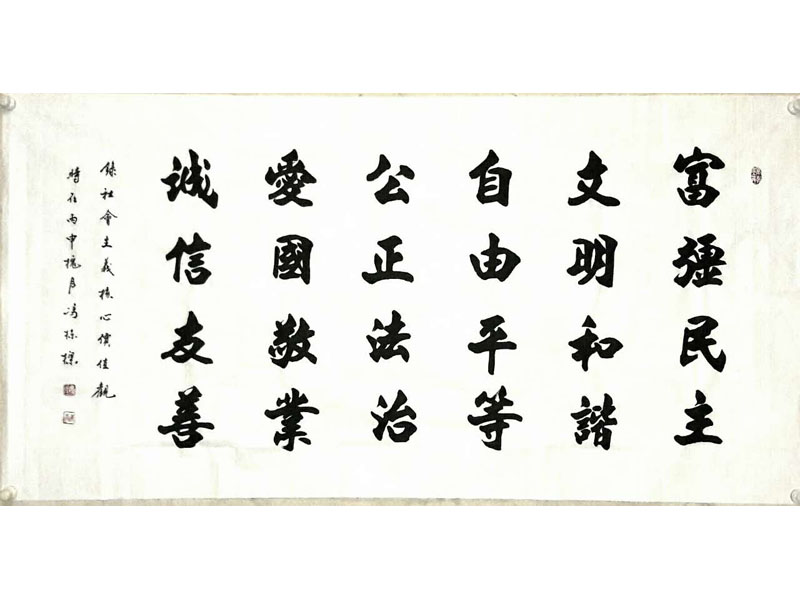 富彊民主
文明和諧
自由平等
公正法治
愛國敬業
诚信友善
錄社會主義核心價值觀
時在丙申槐月